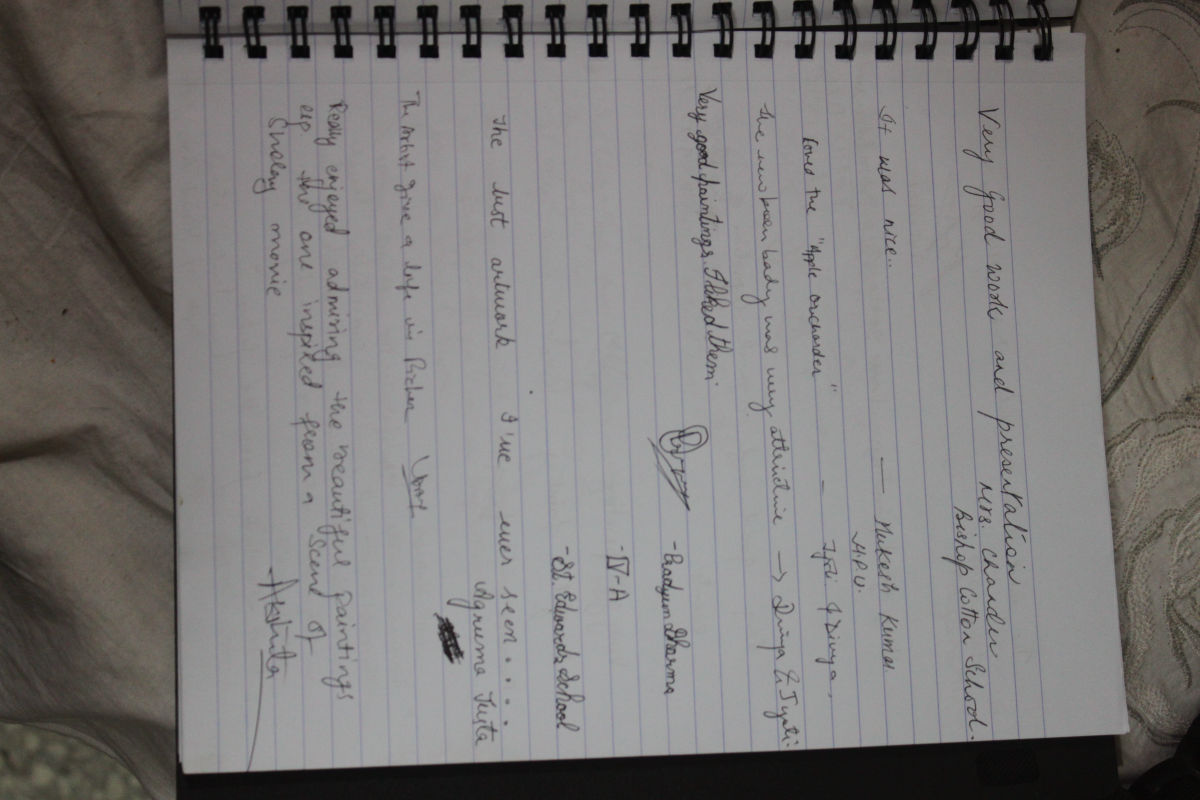 Very good work and presentation
Mrs. Chander
Bishop Cotton School.
It was nice..
— Mukesh Kumar
H.P.U.
loved the "Apple orcharden"
- Jyoti & Divya.
The unbroken body was very attractive → Divya & Jyoti.
Very good paintings. I liked them.
- Pradyum Sharma
- IV-A
- St. Edwards School
The best artwork I've ever seen....
The Artist give a life in
Really enjoyed admiring the beautiful paintings
esp the one inspired from a scene of
Sholay movie
- Akshita